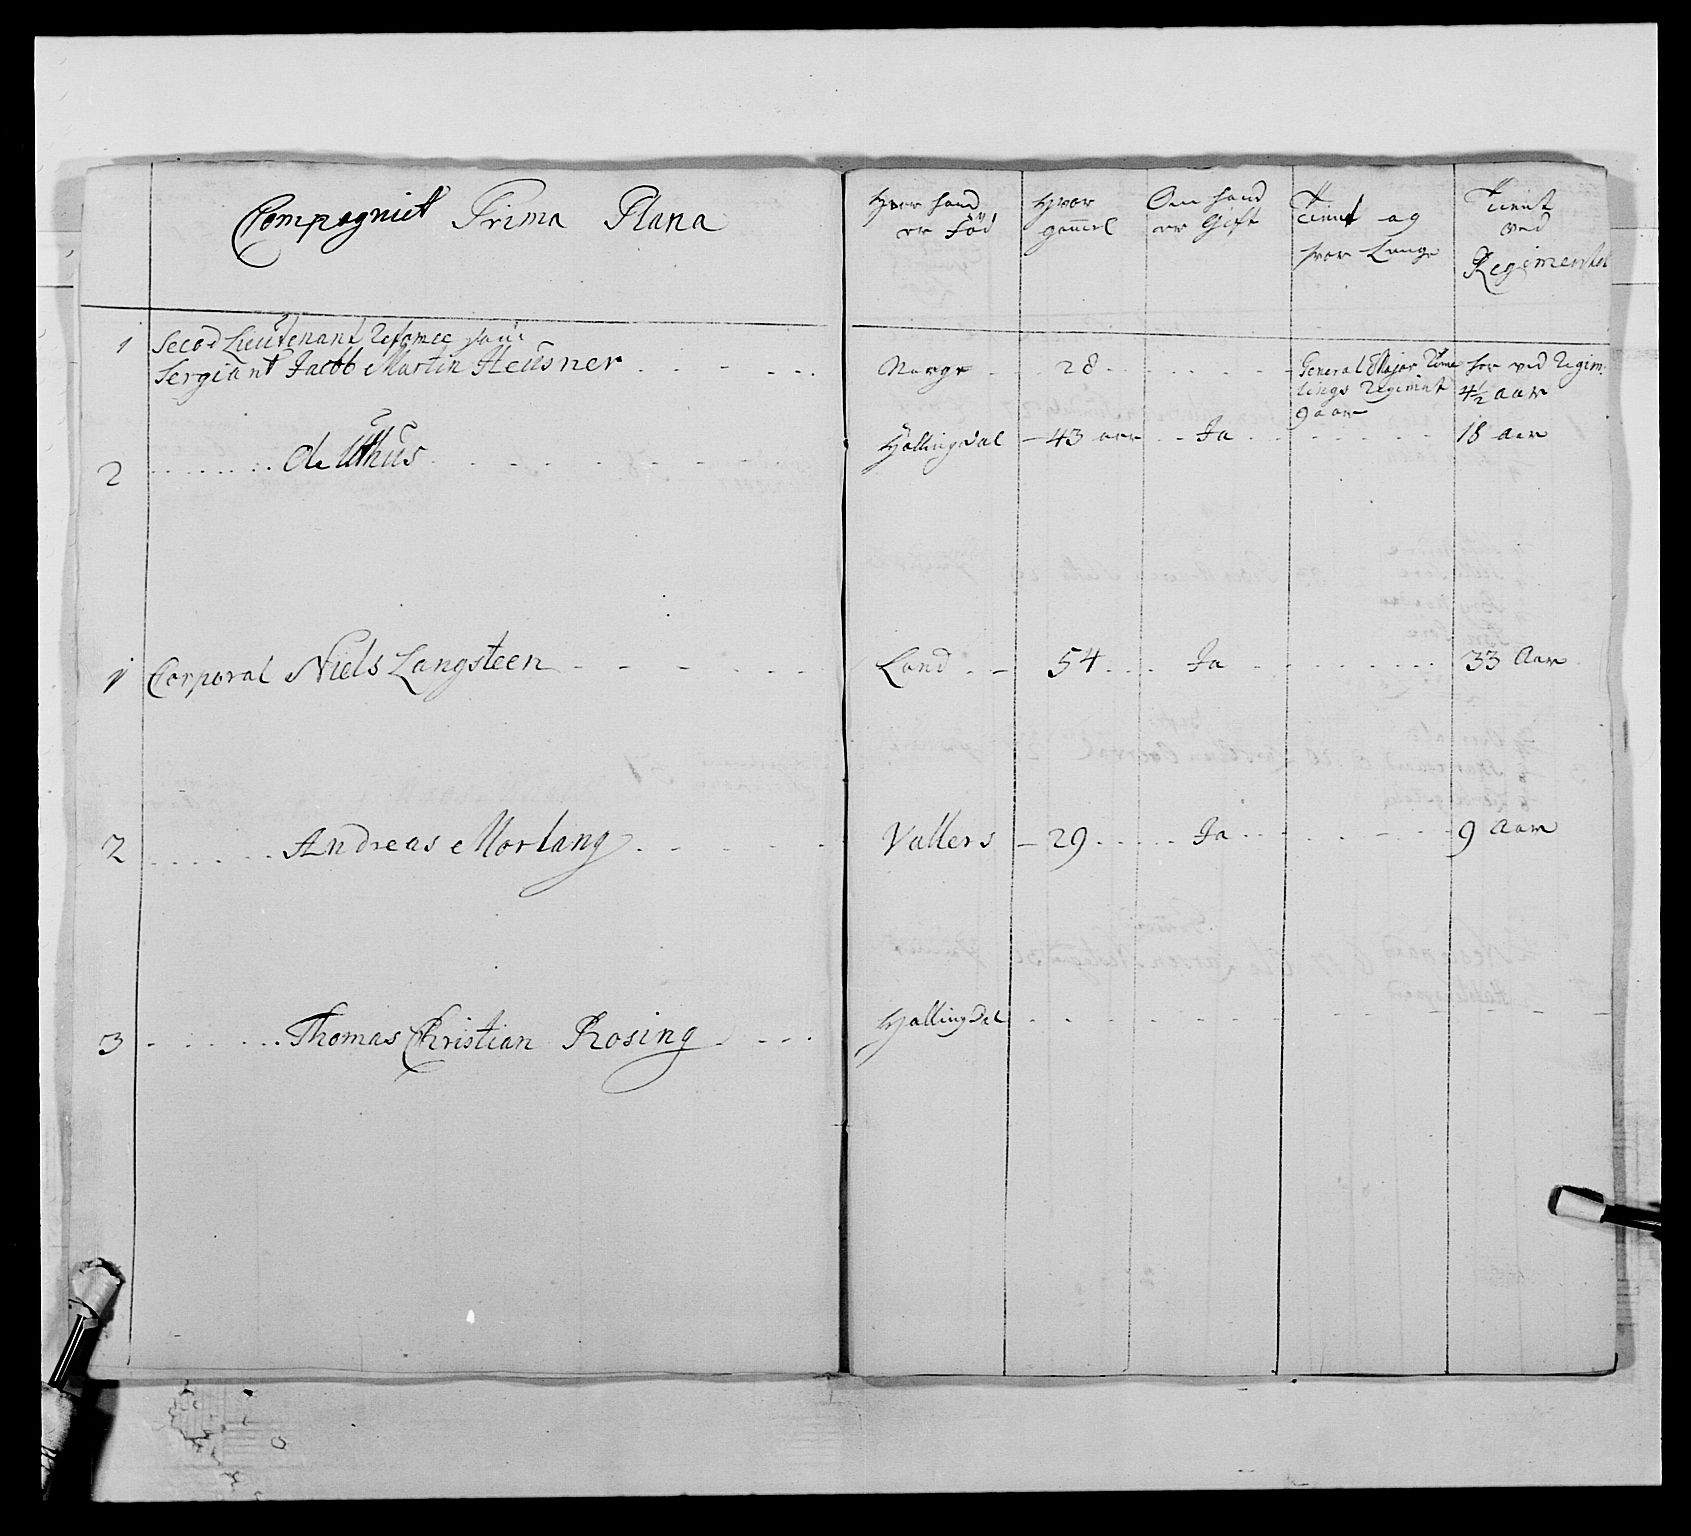 Compagniet Prima Plana
Hvor hand er Föd
Hvor gammel
Om hand er Gift
Tient og hvor Lenge
Tient ved Regimentet
1 Second Lieutenant
Sergiant Jacob Martin Heusner Norge 28 General Major Regiment 9 aar her ved Regim: 4½ aar
2 Hallingdal 43 aar Ja 18 aar
1 Corporal Niels Langsteen Land 54 Ja 33 Aar
2 Andreas Morlang Vallers 29 Ja 9 Aar
3 Thomas Christian Rosing Hallingdal